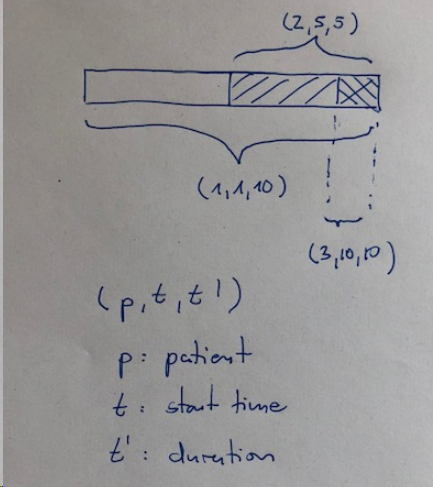 (2,5,5)
(1,1,10)
(3,10,10)
(p,t,t')
p: patient
t: start time
t': duration